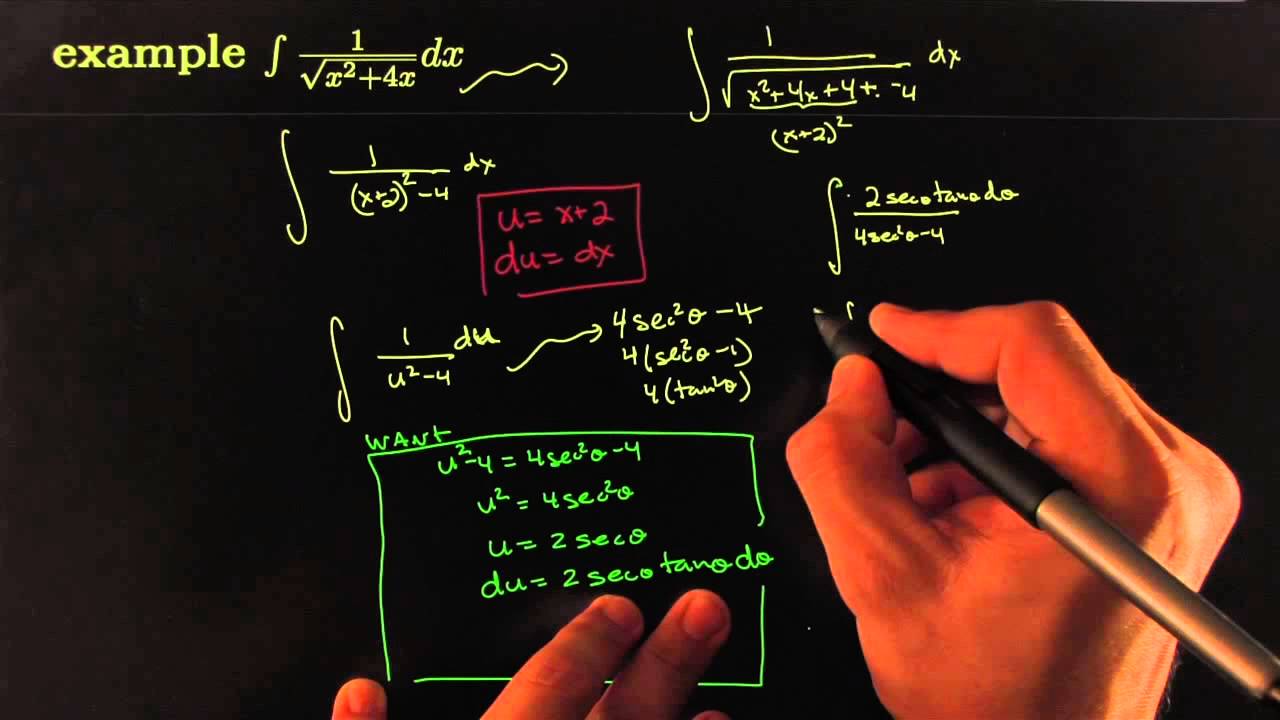 example ∫ 1/√(x²+4x) dx
∫ 1/√(x²+4x+4+-4) dx
(x+2)²
∫ 1/((x+2)²-4) dx
u = x+2
du = dx
∫ 2secθtanθdθ/(4sec²θ-4)
∫ 1/(u²-4) du
4sec²θ-4
4(sec²θ-1)
4(tan²θ)
WANT
u²-4 = 4sec²θ-4
u² = 4sec²θ
u = 2secθ
du = 2secθtanθdθ
∫